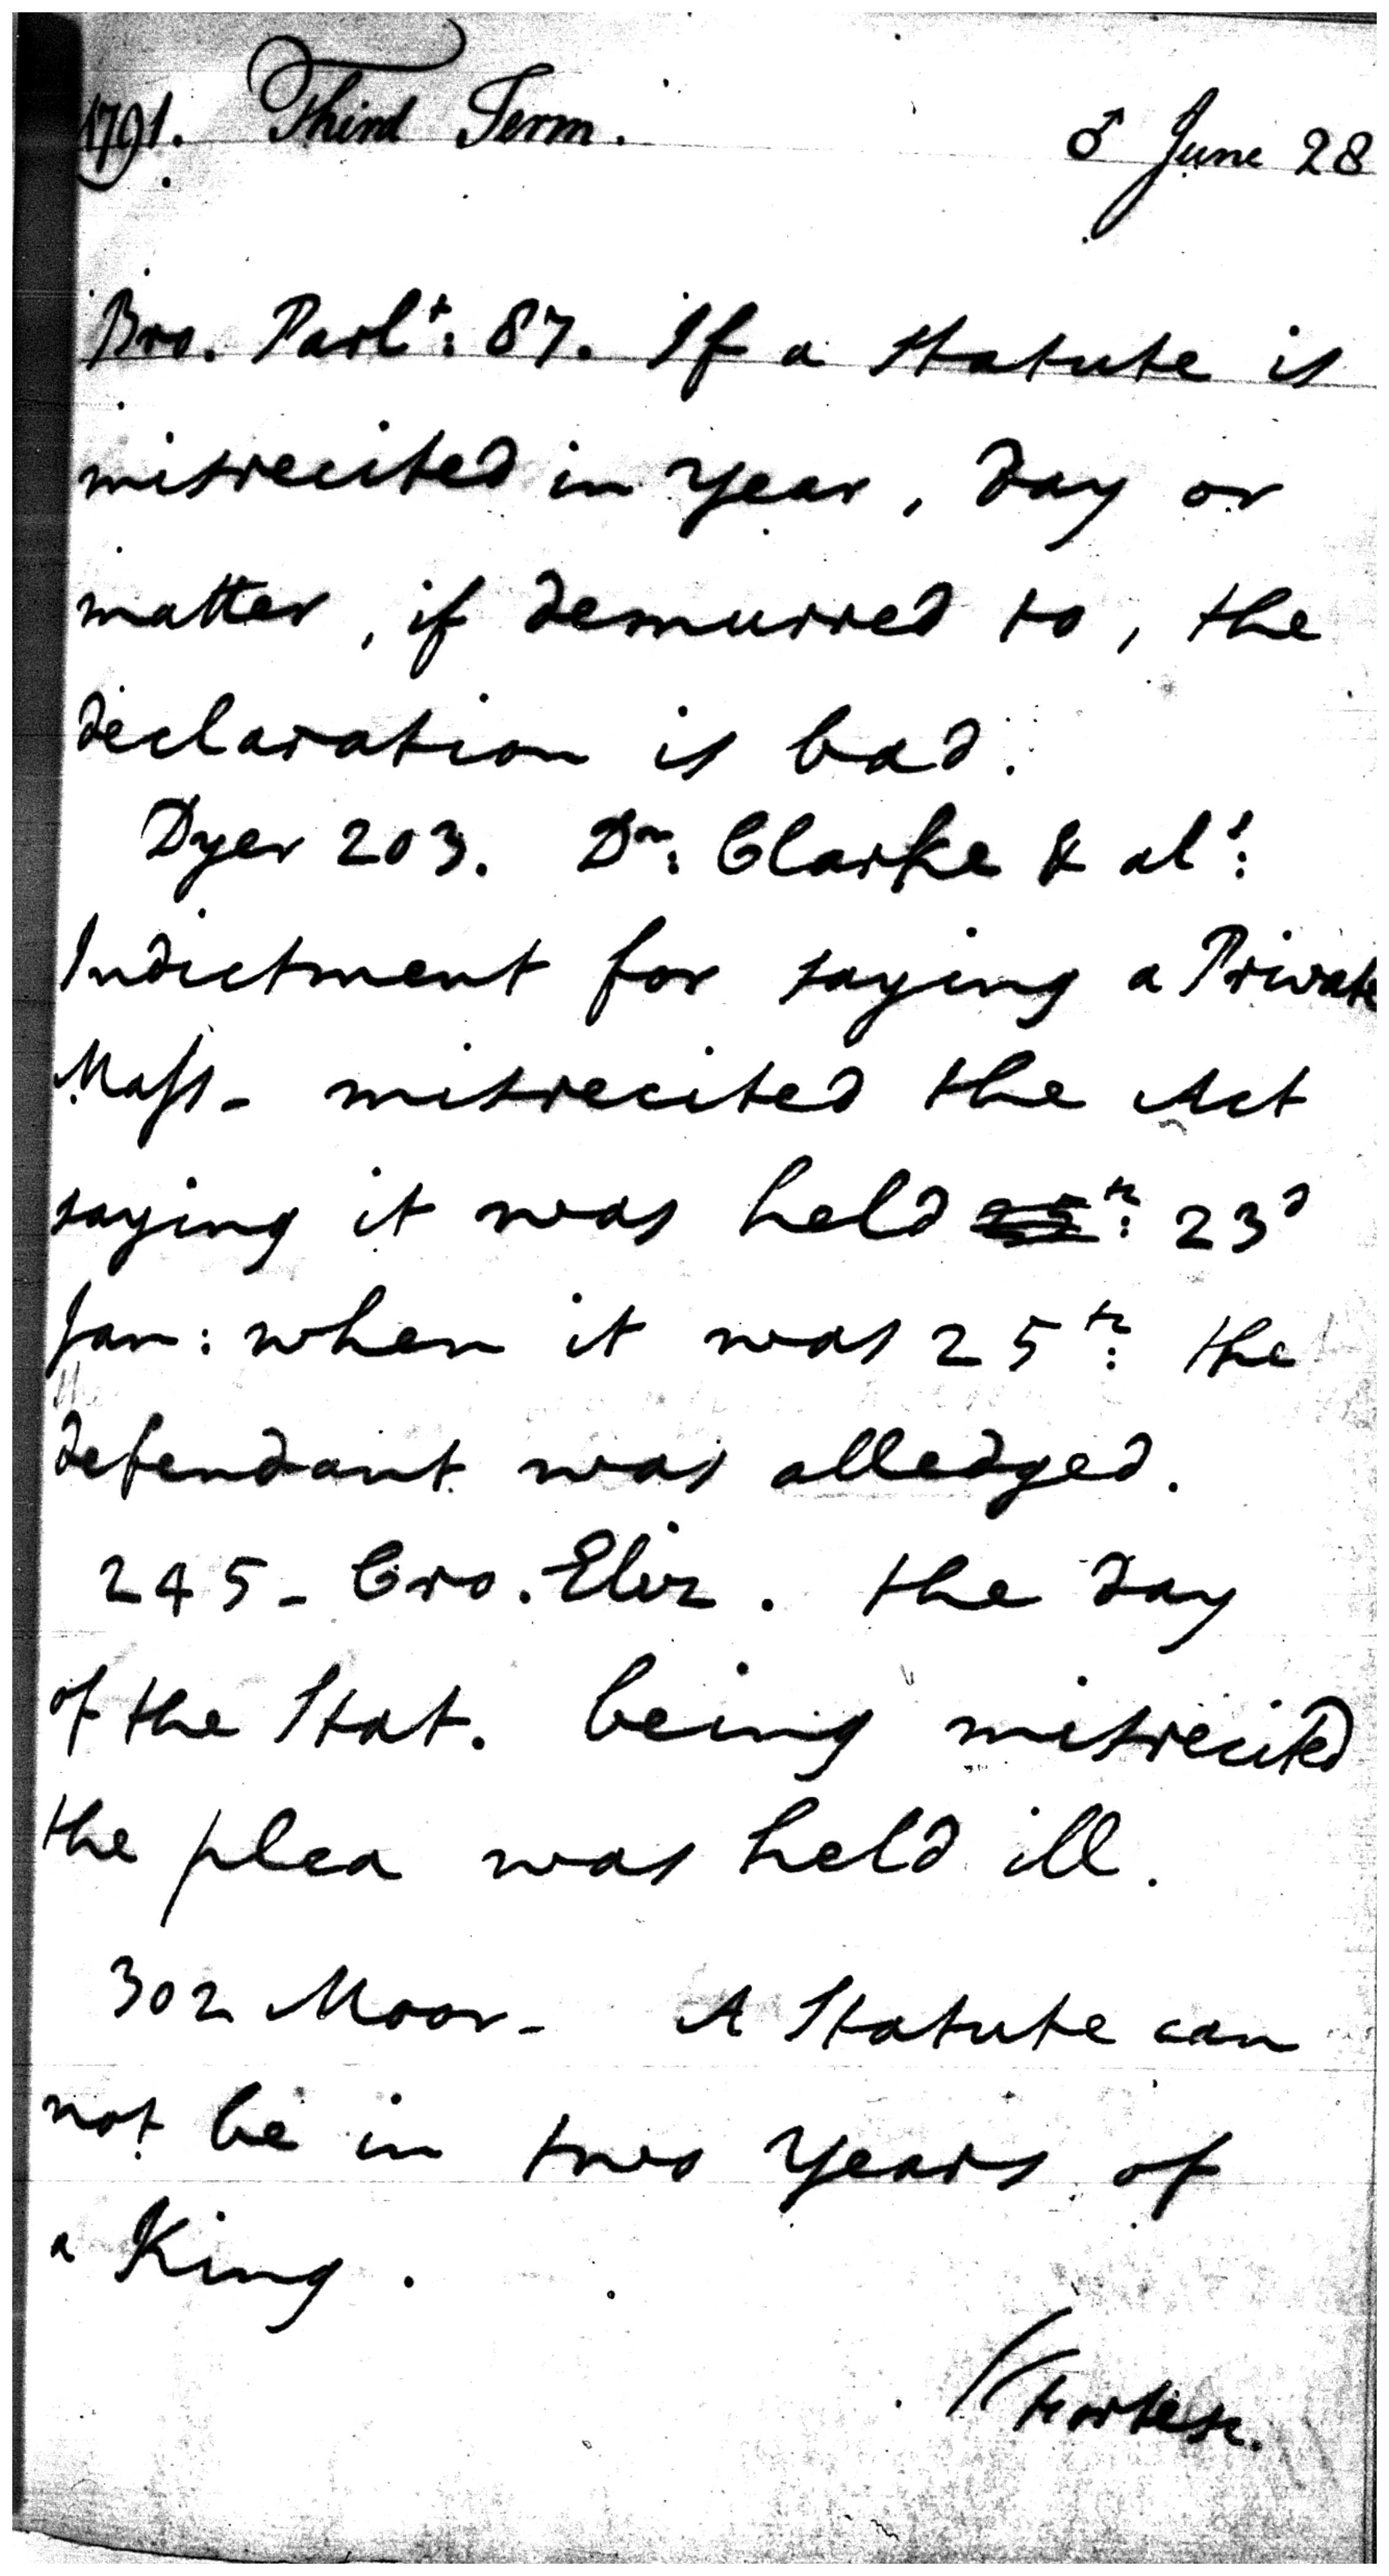 1791. Third Term. ♂ June 28
Bro. Parlt: 87. If a statute is
misrecited in year, day or
matter, if demurred to, the
declaration is bad.
Dyer 203. Dr: Clarke & alt:
Indictment for saying a Private
Mass - misrecited the Act
saying it was held 25th: 23d
Jan: when it was 25th: the
defendant was alledged.
245 - Cro. Eliz. the day
of the Stat. being misrecited
the plea was held ill.
302 Moor - A Statute can
not be in two years of
a King.
Fortesc.